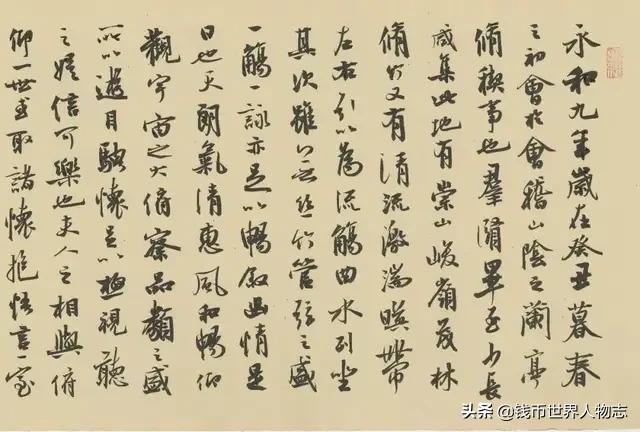 永和九年歲在癸丑暮春
之初會於會稽山陰之蘭亭
脩稧事也羣賢畢至少長
咸集此地有崇山峻嶺茂林
脩竹又有清流激湍暎帶
左右引以為流觴曲水列坐
其次雖無絲竹管弦之盛
一觴一詠亦足以暢敘幽情是
日也天朗氣清惠風和暢仰
觀宇宙之大俯察品類之盛
所以遊目騁懷足以極視聽
之娛信可樂也夫人之相與俯
仰一世或取諸懷抱悟言一室
头条 @钱币世界人物志